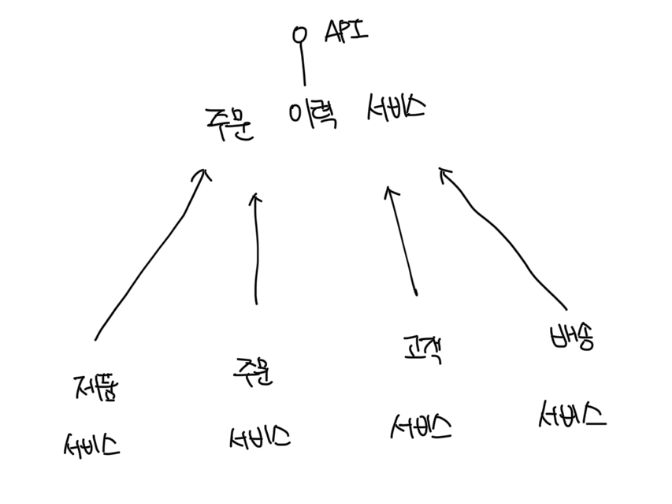 API
주문 이력 서비스
제품
서비스
주문
서비스
고객
서비스
배송
서비스